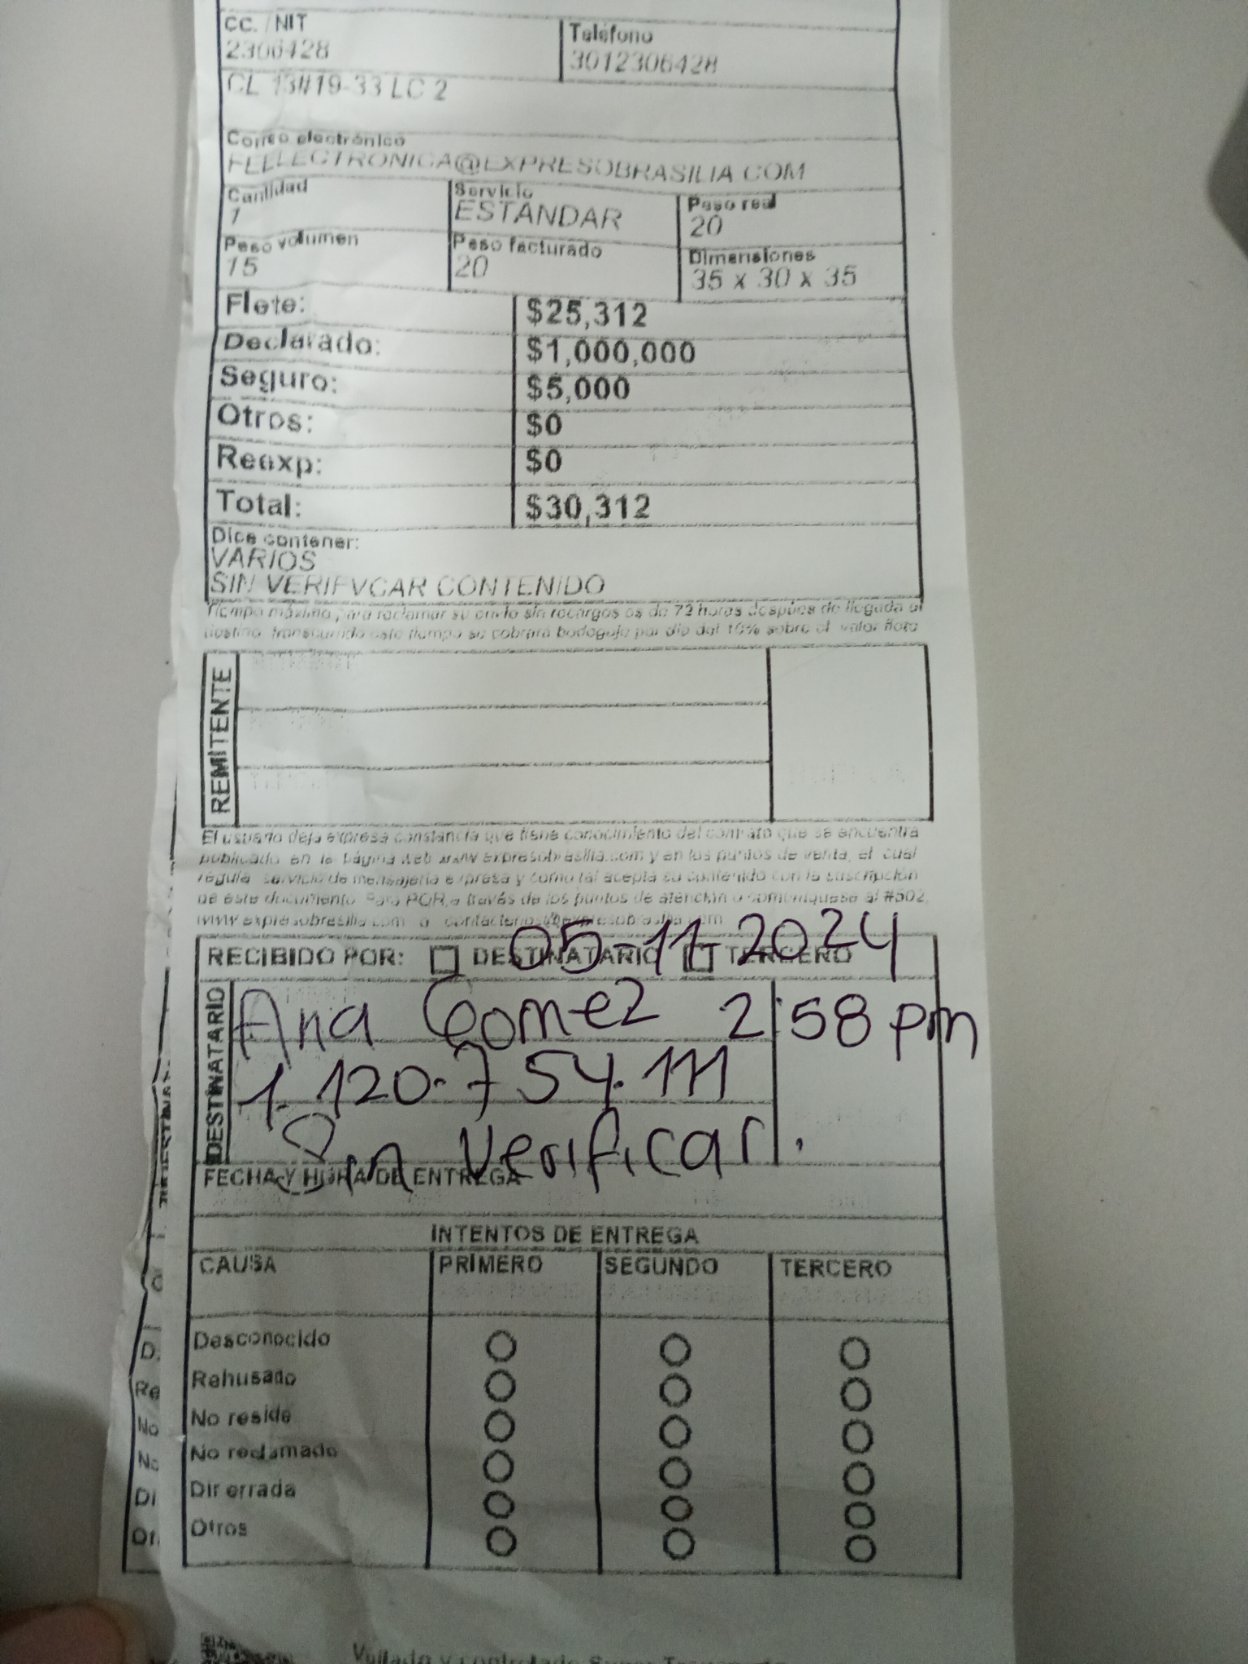 CC. / NIT
2306428
Teléfono
3012306428
CL 13#19-33 LC 2
Correo electrónico
FELLECTRONICA@EXPRESOBRASILIA COM
Cantidad
1
Servicio
ESTANDAR
Peso real
20
Peso volumen
15
Peso facturado
20
Dimensiones
35 x 30 x 35
Flete: $25,312
Declarado: $1,000,000
Seguro: $5,000
Otros: $0
Reexp: $0
Total: $30,312
Dice contener:
VARIOS
SIN VERIFVCAR CONTENIDO
Tiempo máximo para reclamar su envío sin recargos es de 72 horas después de llegada al
destino, transcurrido este tiempo se cobrara bodegaje por día del 10% sobre el valor flete
REMITENTE
El usuario deja expresa constancia que tiene conocimiento del contrato que se encuentra
publicado en la página web www expresobrasilia.com y en los puntos de venta, el cual
regula servicio de mensajería expresa y como tal acepta su contenido con la suscripción
de este documento. Para PQR, a través de los puntos de atención o comuníquese al #502,
www expresobrasilia com o contactenos@expresobrasilia com
05-11-2024
RECIBIDO POR: DESTINATARIO TERCERO
DESTINATARIO
Ana Gomez 2:58 pm
1.120.754.111
Sin Verificar.
FECHA Y HORA DE ENTREGA
INTENTOS DE ENTREGA
CAUSA PRIMERO SEGUNDO TERCERO
Desconocido
Rehusado
No reside
No reclamado
Dir errada
Otros
D.
Re
No
No
Di
Ot.
Vigilado y controlado Super Transporte